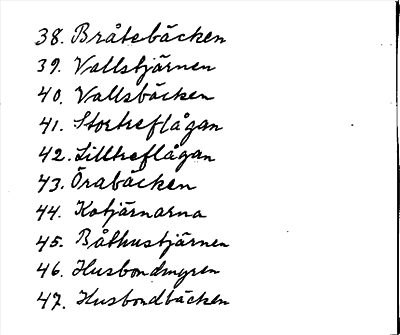 38. Bråtebäcken
39. Vallstjärnen
40. Vallsbäcken
41. Stortreflågan
42. Lilltreflågan
43. Örabäcken
44. Kotjärnarna
45. Båthustjärnen
46. Husbondmyren
47. Husbondbäcken